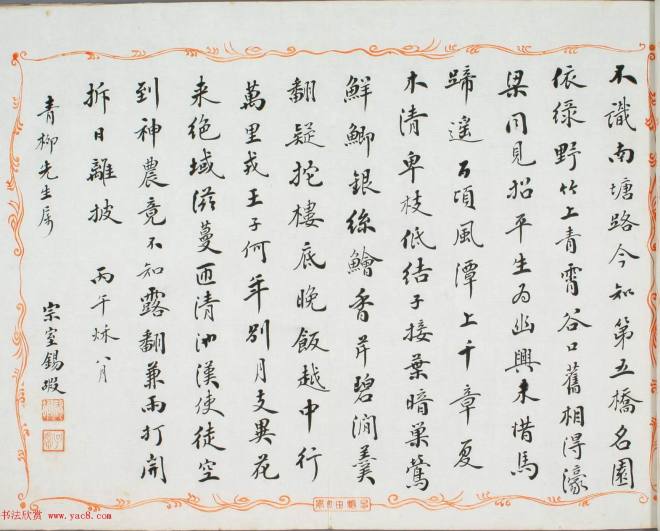 不識南塘路今知第五橋名園
依綠野竹上青霄谷口舊相得濠
梁同見招平生為幽興未惜馬
蹄遙百頃風潭上千章夏
木清卑枝低結子接葉暗巢鶯
鮮鯽銀絲鱠香芹碧澗羹
翻疑柁樓底晚飯越中行
萬里戎王子何年別月支異花
來絕域滋蔓匝清池漢使徒空
到神農竟不知露翻兼雨打開
拆日離披 丙午秋八月
青柳先生屬
宗室錫嘏
书法欣赏
www.yac8.com